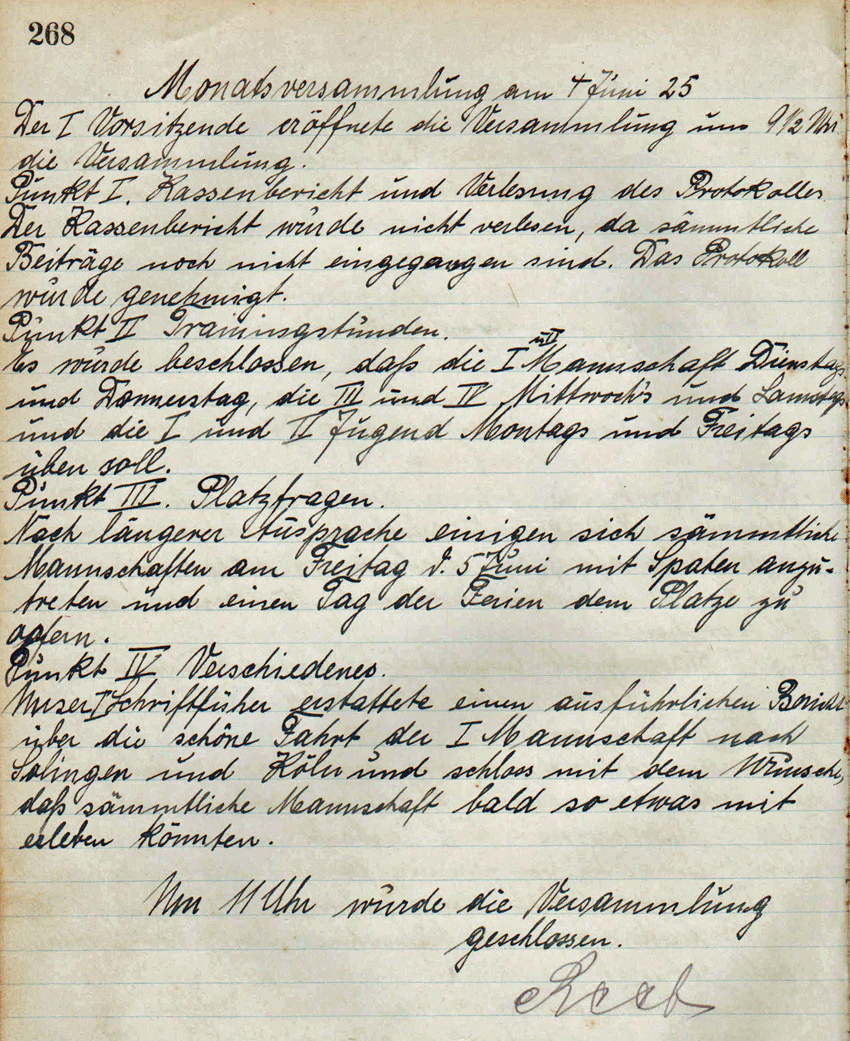 268
Monatsversammlung am 4 Juni 25
Der I Vorsitzende eröffnete die Versammlung um 9 1/2 Uhr
die Versammlung.
Punkt I. Kassenbericht und Verlesung des Protokolles
Der Kassenbericht wurde nicht verlesen, da sämmtliche
Beiträge noch nicht eingegangen sind. Das Protokoll
wurde genehmigt.
Punkt II Trainingstunden.
Es wurde beschlossen, daß die I u II Mannschaft Dienstags
und Donnerstag, die III und IV Mittwoch's und Samstags
und die I und II Jugend Montags und Freitags
üben soll.
Punkt III. Platzfragen.
Nach längerer Aussprache einigen sich sämmtliche
Mannschaften am Freitag d. 5 Juni mit Spaten anzu-
treten und einen Tag der Ferien dem Platze zu
opfern.
Punkt IV Verschiedenes.
Unser I Schriftfüher erstattete einen ausführlichen Bericht
über die schöne Fahrt der I Mannschaft nach
Solingen und Köln und schloss mit dem Wunsche,
daß sämmtliche Mannschaft bald so etwas mit
erleben könnten.
Um 11 Uhr wurde die Versammlung
geschlossen.